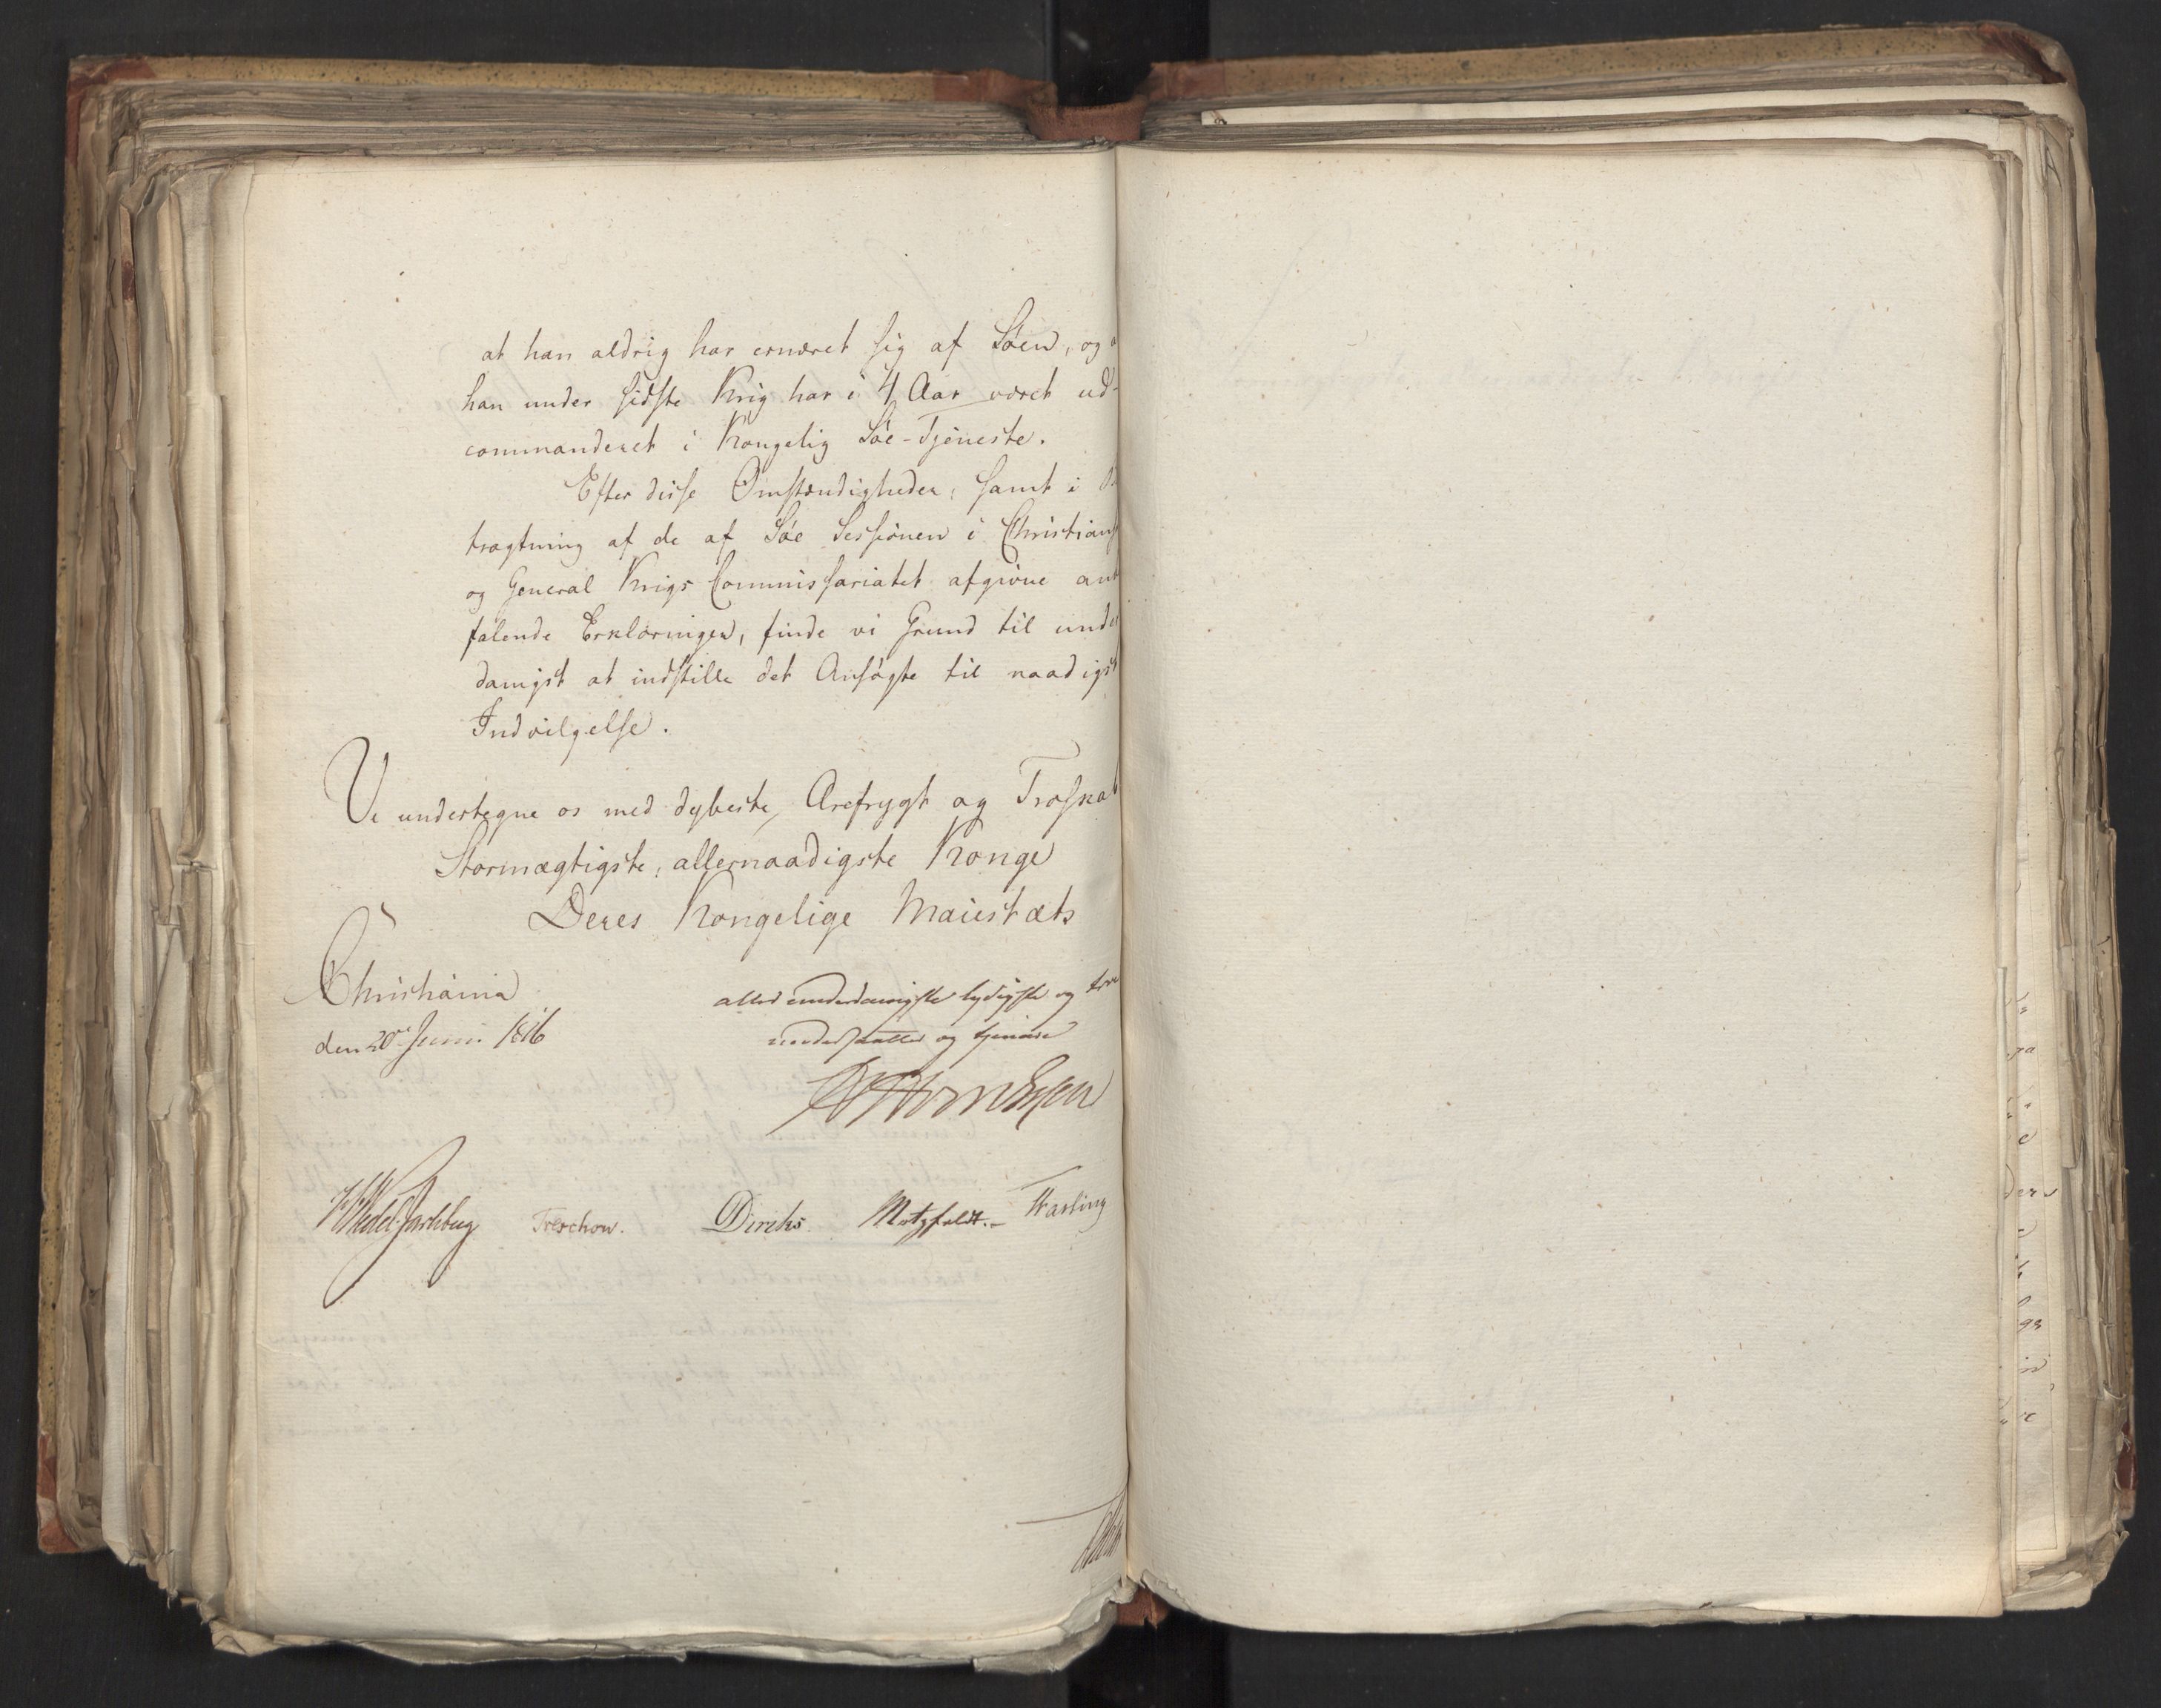 at han aldrig har ernæret sig af Søen, og a
han under sidste Krig har i 4 Aar været ud-
commanderet i Kongelig Søe-Tjeneste.
Efter disse Omstændigheder, samt i Be
tragtning af de af Søe Sessionen i Christians
og General Krigs Commissariatet afgivne anb
falende Erklæringer, finde vi Grund til under
danigst at indstille det Ansøgte til naadigst
Indvilgelse.
Vi undertegne os med dybeste Ærefrygt og Troskab
Stormægtigste, allernaadigste Konge
Deres Kongelige Maiestæts
Christiania
den 20de Juni 1816
allerunderdanigste lydigste og tro
undersaatter og tjenere
HWedel Jarlsberg
Treschow.
Diriks
Motzfeldt.
Fasting